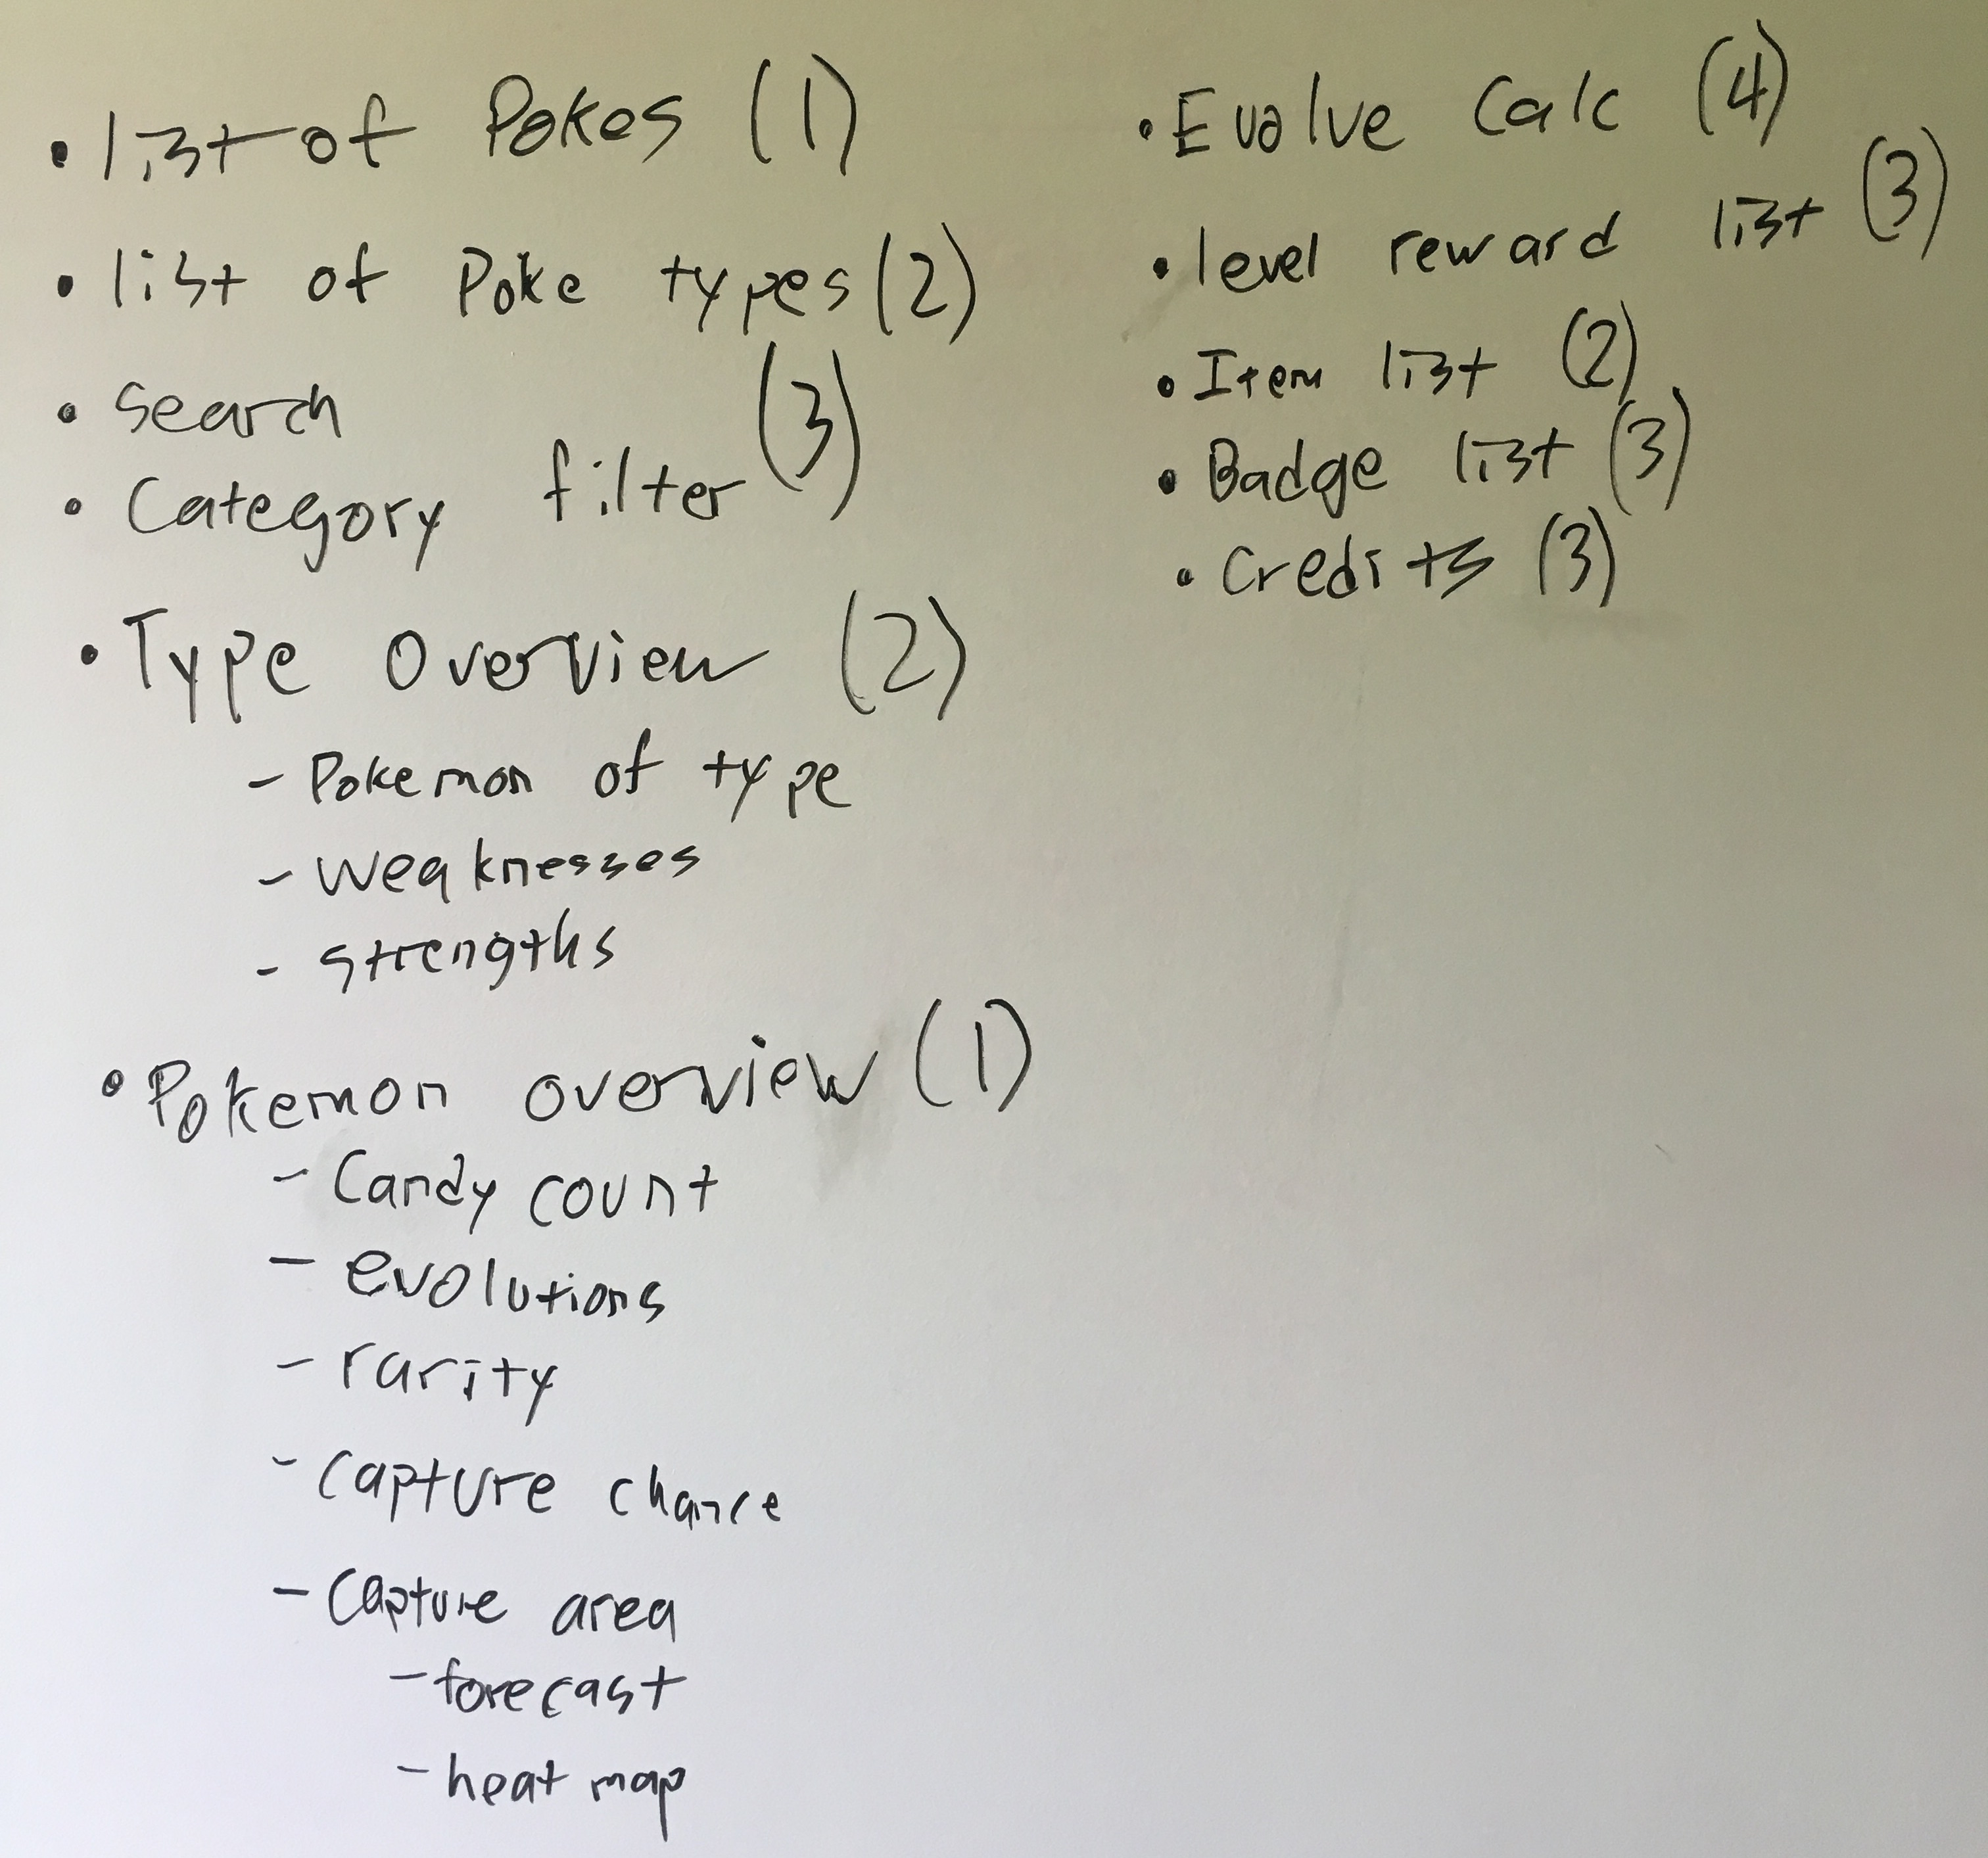 • list of Pokes (1)
• list of Poke types (2)
• Search
• Category filter (3)
• Type Overview (2)
- Pokemon of type
- weaknesses
- strengths
• Pokemon overview (1)
- Candy count
- evolutions
- rarity
- Capture chance
- Capture area
- forecast
- heat map
• Evolve Calc (4)
• level reward list (3)
• Item list (2)
• Badge list (3)
• Credits (3)